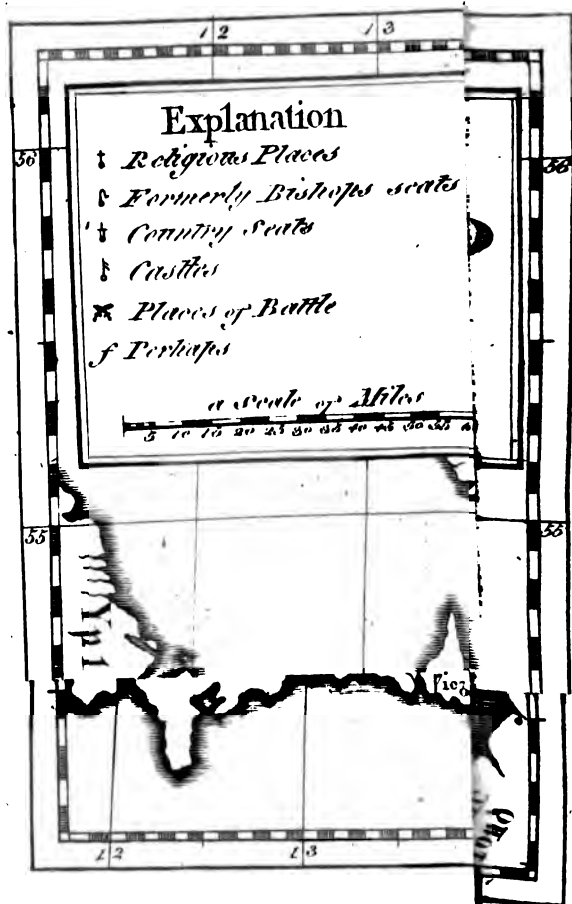 12 13
Explanation
56 56
Religious Places
Formerly Bishops seats
Country Seats
Castles
Places of Battle
f Perhaps
a scale of Miles
5 10 15 20 25 30 35 40 45 50 55
55 55
12 13